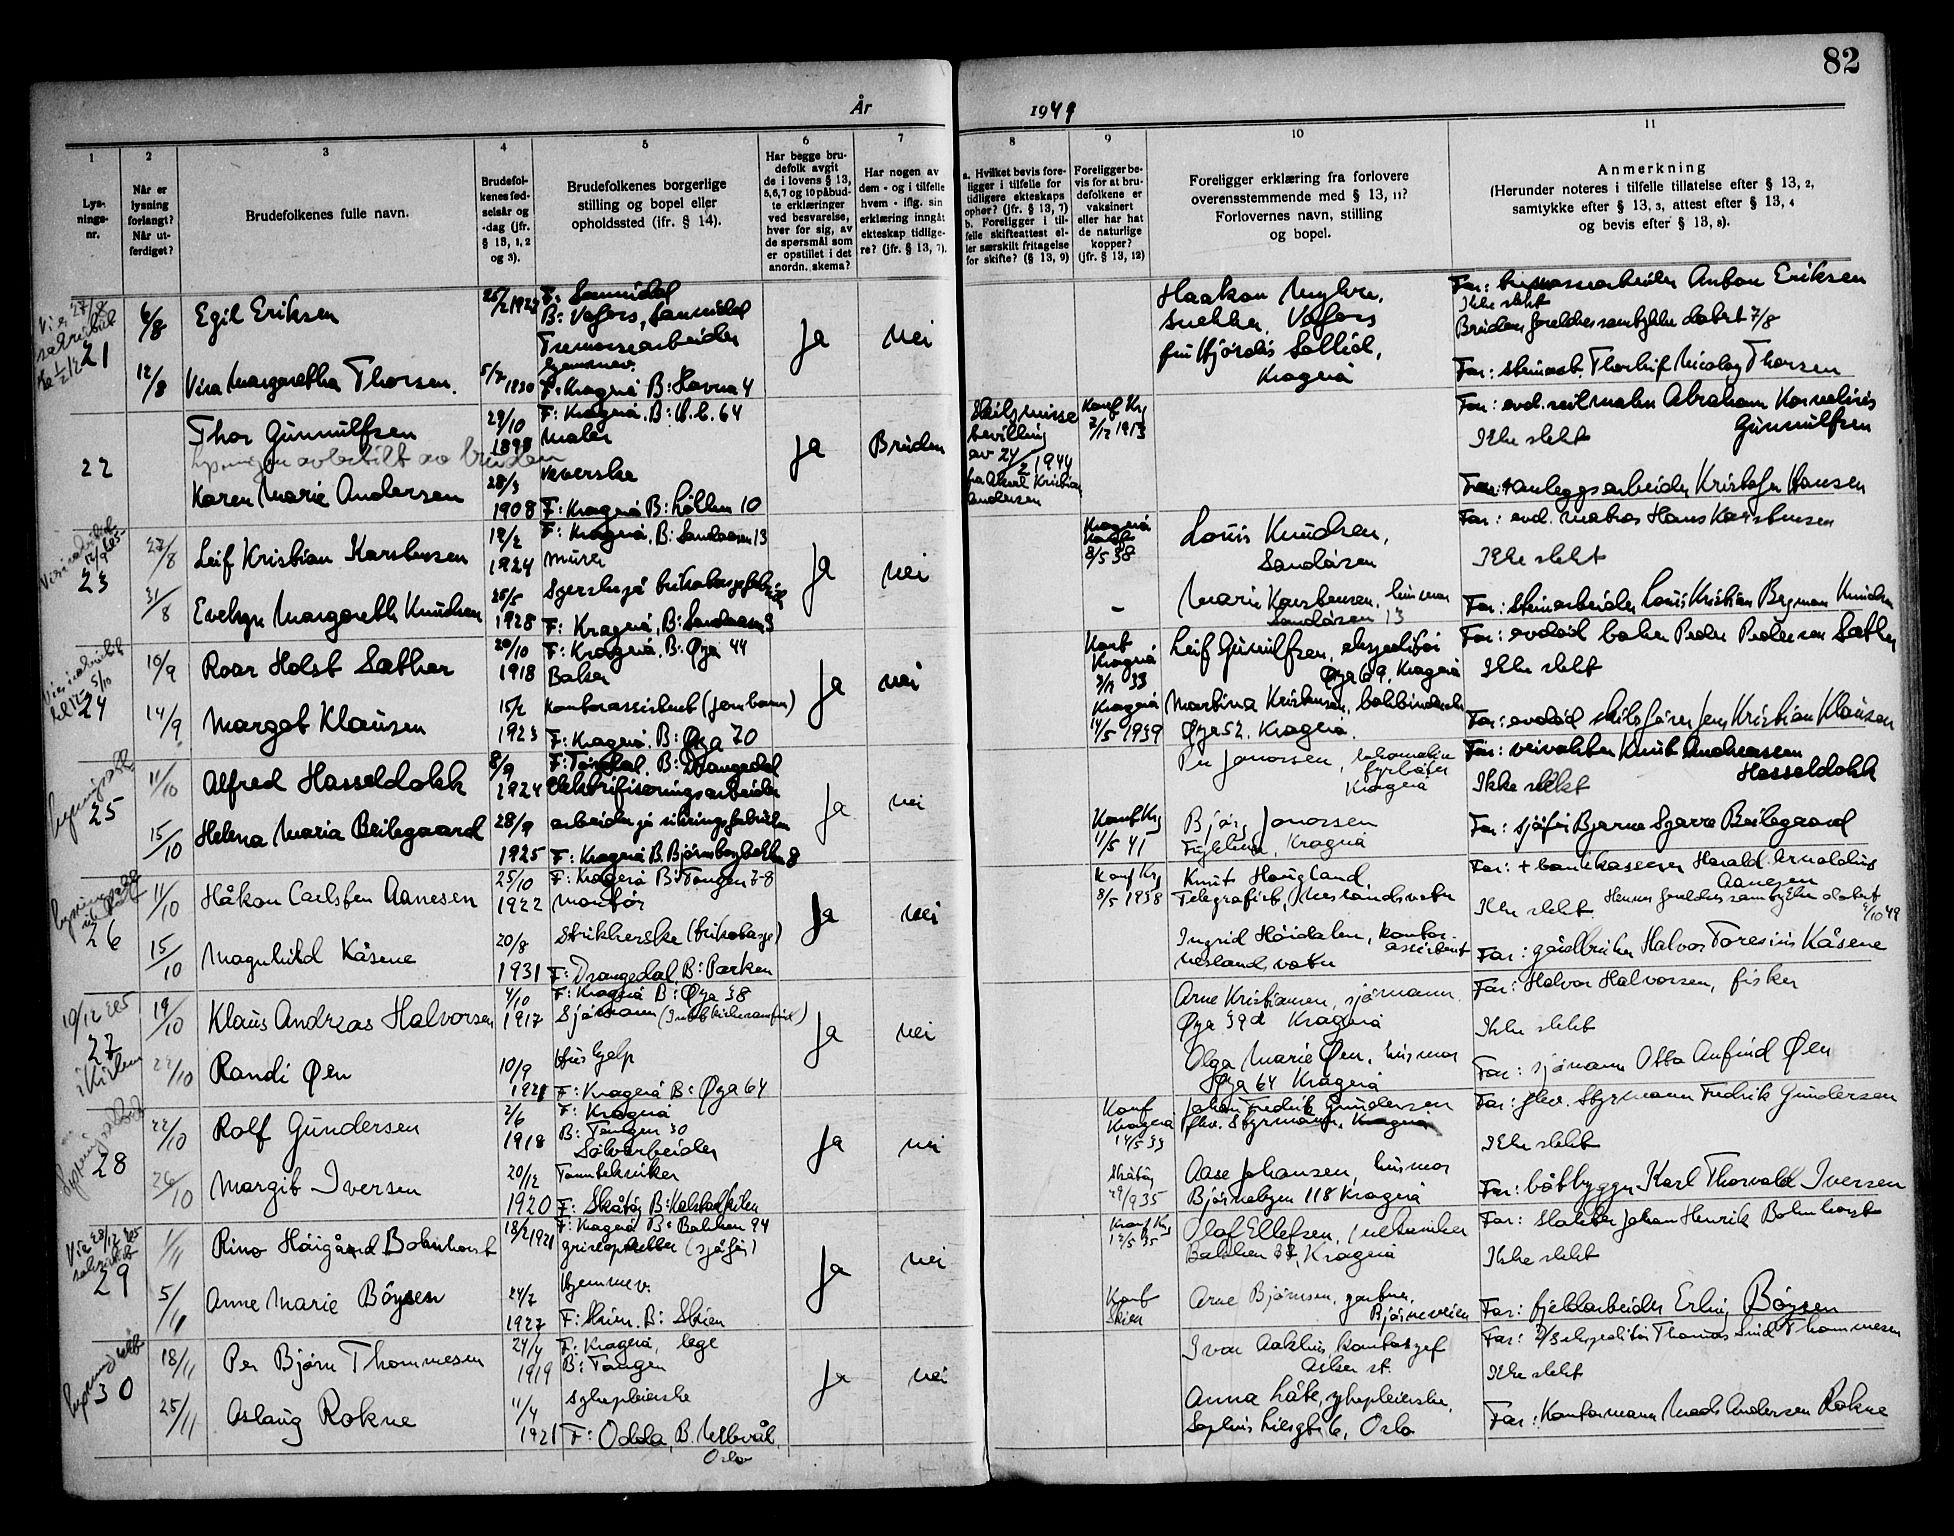 82
År 1949
1
2
3
4
5
6
7
8
9
10
11
Lys-
nings-
nr.
Når er
lysning
forlangt?
Når ut-
ferdiget?
Brudefolkenes fulle navn.
Brudefol-
kenes fød-
selsår og
-dag (jfr.
§ 13, 1, 2
og 3).
Brudefolkenes borgerlige
stilling og bopel eller
opholdssted (jfr. § 14).
Har begge bru-
defolk avgit
de i lovens § 13,
5,6,7 og 10 påbud-
te erklæringer
ved besvarelse,
hver for sig, av
de spørsmål som
er opstillet i det
anordn. skema?
Har nogen av
dem - og i tilfelle
hvem - iflg. sin
erklæring inngått
ekteskap tidlige-
re? (jfr. § 13, 7).
a. Hvilket bevis fore-
ligger i tilfelle for
tidligere ekteskaps
ophør? (jfr. § 13, 7)
b. Foreligger i til-
felle skifteattest el-
ler særskilt fritagelse
for skifte? (§ 13, 9)
Foreligger be-
vis for at bru-
defolkene er
vaksinert
eller har hat
de naturlige
kopper?
(jfr. § 13, 12)
Foreligger erklæring fra forlovere
overensstemmende med § 13, 11?
Forlovernes navn, stilling
og bopel.
Anmerkning
(Herunder noteres i tilfelle tillatelse efter § 13, 2,
samtykke efter § 13, 3, attest efter § 13, 4
og bevis efter § 13, 8).
21
6/8
Egil Eriksen
F: Sannidal
B: Vafos, Sannidal
Tremassearbeider
Ja
nei
Vafos
fru Hjørdis Sollid,
Kragerø
Far: Anton Eriksen
Ikke slekt
Brudens foreldresamtykke datert 7/8
12/8
Vera Margaretha Thorsen.
5/7 1930
Hjemmev.
F: Kragerø B: Havna 4
Far: Thorleif Nicolay Thorsen
22
Thor Gunnulfsen
29/10
1898
F: Kragerø. B: 64
Maler
Ja
Bruden
Skilsmisse
bevilling
av 24/2 1944
fra Aksel Kristian
Andersen
Konf Krg
2/12 1913
Far: Abraham Kornelius
Gunnulfsen
Ikke slekt
av bruden
Karen Marie Andersen
28/3
1908
Veverske
F: Kragerø B: Løkken 10
Far: + anleggsarbeider Kristofer Hansen
23
27/8
Leif Kristian Karstensen
12/2
1924
F: Kragerø, B: Sandaasen 13
Murer
Ja
nei
Kragerø
8/5 38
Louis Knudsen,
Sandåsen
Far: avd. matros Hans Karstensen
Ikke slekt
31/8
Evelyn Margareth Knudsen
25/5
1928
F: Kragerø, B: Sandaasen
-
Marie Karstensen, husmor
Sandåsen 13
Far: Steinarbeider Louis Kristian Bergman Knudsen
24
10/9
Roar Holst Sæther
20/10
1918
F: Kragerø. B: Øya 44
Baker
Ja
nei
Konf
Kragerø
Leif Gunnulfsen, ekspeditør
Øya 69, Kragerø
Far: avdød baker Peder Pedersen Sæther
Ikke slekt
14/9
Margot Klausen
15/2
1923
Kontorassistent (jernbanen)
F: Kragerø. B: Øya 70
Kragerø
14/5 1939
Martina Kristensen,
Øya 52, Kragerø.
Far: avdød skibsfører Jens Kristian Klausen
25
11/10
Alfred Hasseldokk
8/9
1924
F: Tørdal. B: Drangedal
Elektrifiseringsarbeider
Ja
nei
Per Jonassen, lokomotiv
fyrbøter
Kragerø
Far: veivokter Knut Andreassen
Hasseldokk
Ikke slekt
15/10
Helena Maria Beilegaard
28/9
1925
F: Kragerø B. Bjørnsborgbakken 8
Konf Krg
11/5 41
Bjørg Jonassen
Kragerø
Far: sjåfør Bjarne Beilegaard
26
11/10
Håkon Carlsten Aanesen
25/10
1922
F: Kragerø B: Tangen 7-8
Montør
Ja
nei
Konf Krg
8/5 1938
Knut Haugland
Telegrafist, Neslandsvatn
Far: + bankkasserer Harald Arnoldius
Aanesen
Ikke slekt. Hennes foreldres samtykke datert
15/10
Magnhild Kåsene
20/8
1931
Strikkerske (trikotasje)
F: Drangedal B: Parken
Ingrid Høidalen, kontor-
assistent
Neslandsvatn
Far: gårdbruker Halvor Toresius Kåsene
10/12
27
i Kirken
19/10
Klaus Andreas Halvorsen
4/10
1917
F: Kragerø B: Øya 38
Sjømann
Ja
nei
Arne Kristiansen, sjømann.
Øya 39d Kragerø
Far: Halvor Halvorsen, fisker
Ikke slekt
22/10
Randi Øen
10/9
1921
Hushjelp
F: Kragerø B: Øya 64
Olga Marie Øen, husmor
Øya 64 Kragerø
Far: sjømann Otto Anfind Øen
28
22/10
Rolf Gundersen
2/6
1918
F: Kragerø
B: Tangen 30
Sølvarbeider
Ja
nei
Konf
Kragerø
14/5 33
Johan Fredrik Gundersen
fhv. Styrmann, Kragerø
Far: fhv. Styrmann Fredrik Gundersen
Ikke slekt
26/10
Margit Iversen
20/12
1920
Tanntekniker
F: Skåtøy B: Kalstadkilen
Skåtøy
29/9 35
Aase Johansen, husmor
Bjørnebyen 118 Kragerø
Far: båtbygger Karl Thorvald Iversen
29
1/11
Rino Håigård Bohnhorst
18/2 1921
F: Kragerø B: Bakken 94
(sjåfør)
Ja
nei
Konf Krg
12/5 35
Olof Ellefsen, mekaniker
Bakken 37, Kragerø
Far: Slakter Johan Henrik Bohnhorst
Ikke slekt
5/11
Anne Marie Bøysen
24/7
1927
Hjemmev.
F: Skien. B: Skien
Konf
Skien
Arne Bjørnsen, gartner,
Bjørneveien
Far: fjellarbeider Erling Bøysen
30
18/11
Per Bjørn Thommesen
24/4
1919
F: Kragerø, lege
B: Tangen
Ja
nei
Ivar kontorsjef
Asker st.
Far: Thomas Thommesen
Ikke slekt
25/11
Aslaug Rokne
11/4
1921
Sykepleierske
F: Odda, B. Ullevål
Oslo
Anna Låte, sykepleierske,
Sophus Liesgt 6, Oslo
Far: Kontormann Mads Andersen Rokne